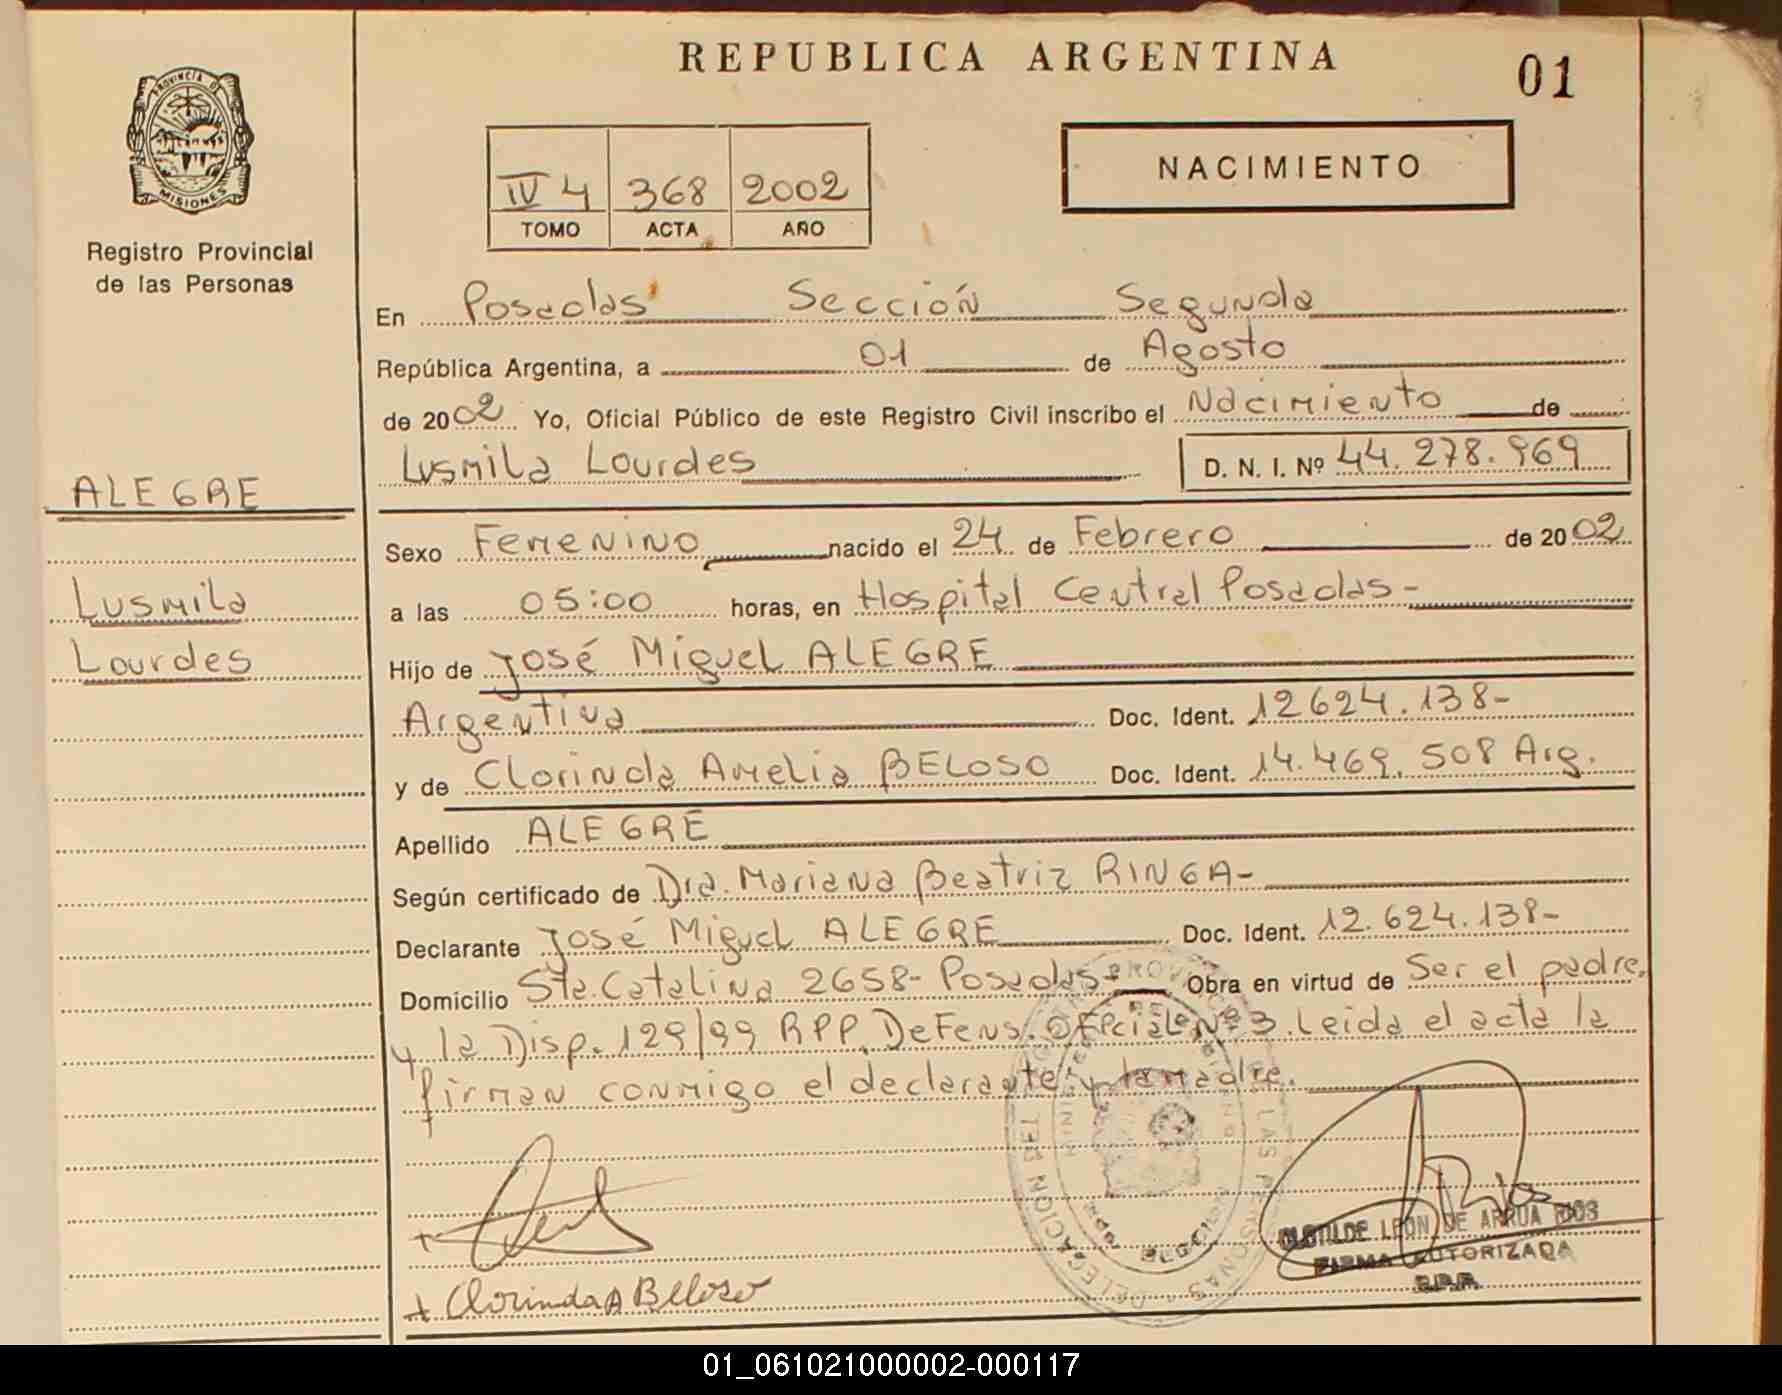 REPUBLICA ARGENTINA
01
PROVINCIA DE
MISIONES
Registro Provincial
de las Personas
NACIMIENTO
IV 4 368 2002
TOMO ACTA AÑO
En Posadas Sección Segunda
República Argentina, a 01 de Agosto
de 2002 Yo, Oficial Público de este Registro Civil inscribo el Nacimiento de
Lusmila Lourdes D. N. I. Nº 44.278.969
ALEGRE
Lusmila
Lourdes
Sexo Femenino nacido el 24 de Febrero de 2002
a las 05:00 horas, en Hospital Central Posadas-
Hijo de José Miguel ALEGRE
Argentina Doc. Ident. 12624.138-
y de Clorinda Amelia BELOSO Doc. Ident. 14.469.508 Arg.
Apellido ALEGRE
Según certificado de Dra. Mariana Beatriz RINGA-
Declarante José Miguel ALEGRE Doc. Ident. 12.624.138-
Domicilio Sta. Catalina 2658- Posadas- Obra en virtud de Ser el padre,
y la Disp. 129/99 RPP. Defens. Oficial Nº 3. Leida el acta la
firman conmigo el declarante y la madre.
DELEGACION DEL PROVINCIAL LAS PERSONAS
+ Clorinda A Beloso
CLOTILDE LEON DE ARRUA RIOS
FIRMA AUTORIZADA
R.P.P.
01_061021000002-000117